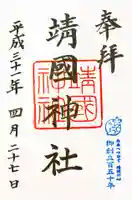 奉拝
靖國神社
平成三十一年 四月 二十七日
御創立百五十年